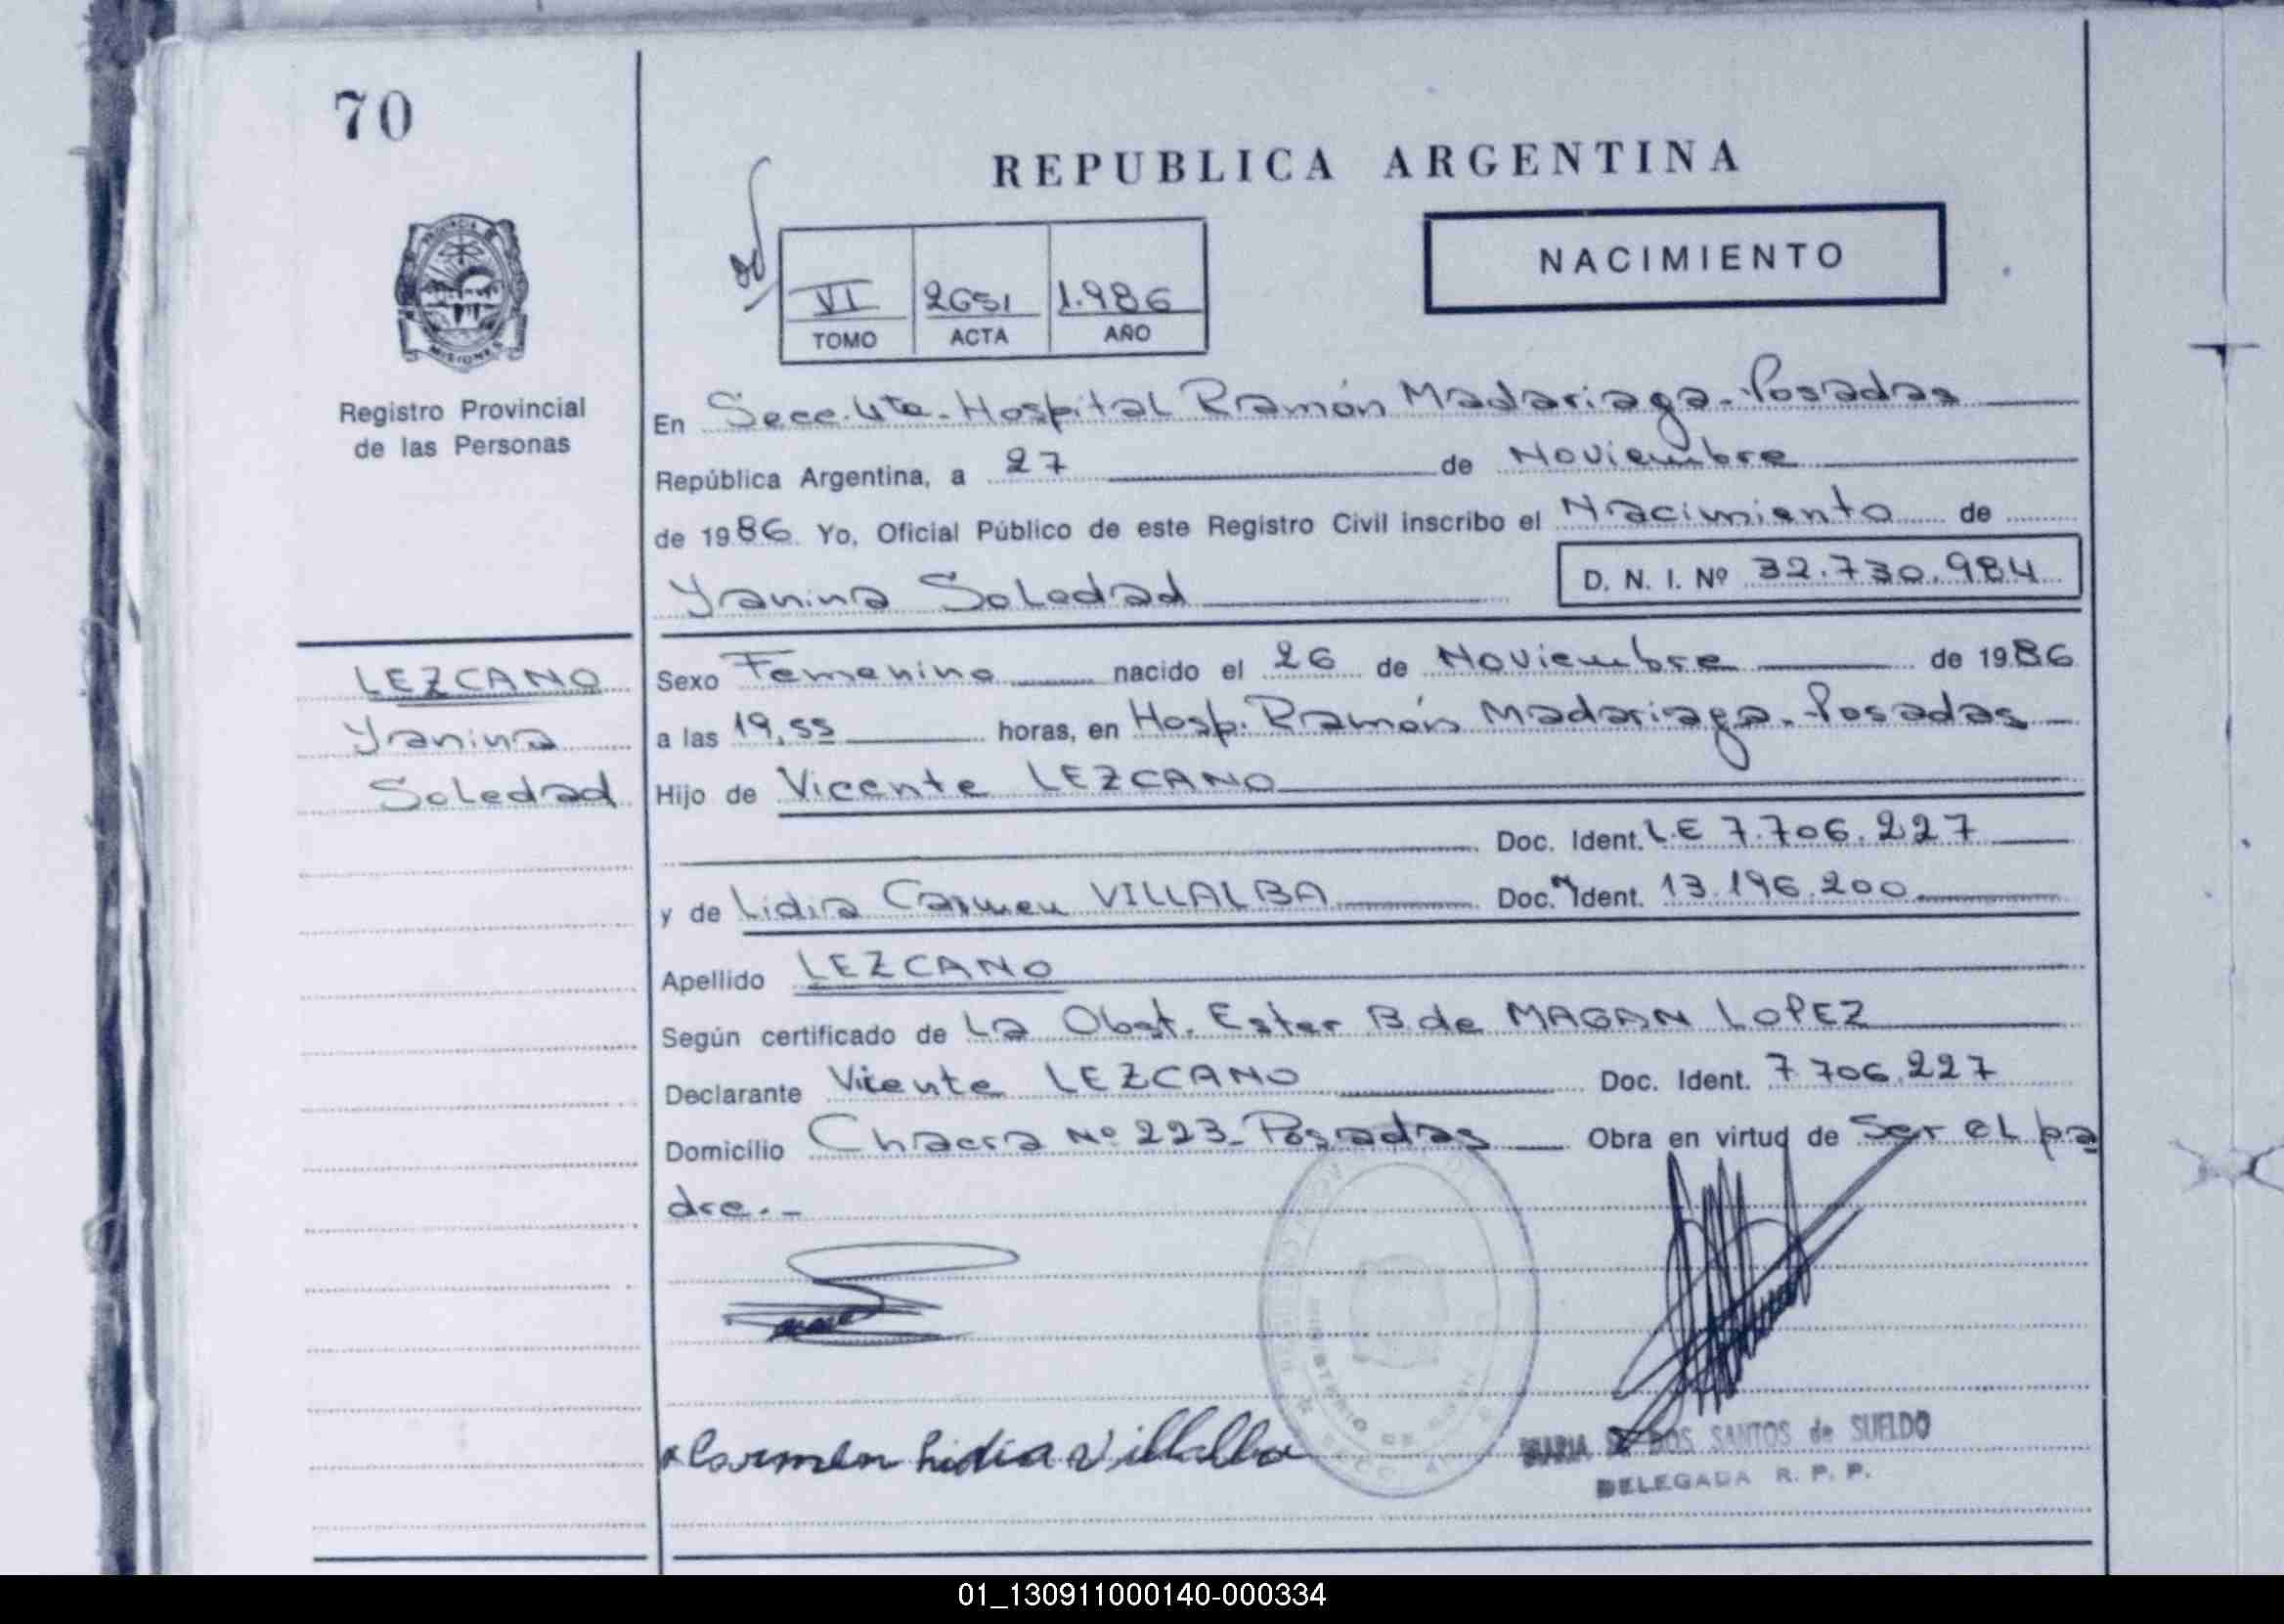 70
REPUBLICA ARGENTINA
NACIMIENTO
VI 2651 1.986
TOMO ACTA AÑO
PROVINCIA DE
MISIONES
Registro Provincial
de las Personas
En Secc. 4ta. Hospital Ramón Madariaga - Posadas
República Argentina, a 27 de Noviembre
de 1986 Yo, Oficial Público de este Registro Civil inscribo el Nacimiento de
Yanina Soledad D. N. I. Nº 32.730.984
LEZCANO
Yanina
Soledad
Sexo Femenino nacido el 26 de Noviembre de 1986
a las 19,55 horas, en Hosp. Ramón Madariaga - Posadas
Hijo de Vicente LEZCANO
Doc. Ident. L.E 7.706.227
y de Lidia Carmen VILLALBA Doc. Ident. 13.196.200
Apellido LEZCANO
Según certificado de La Obst. Ester B de MAGAN LOPEZ
Declarante Vicente LEZCANO Doc. Ident. 7 706.227
Domicilio Chacra Nº 223 - Posadas Obra en virtud de Ser el pa
dre. -
Carmen Lidia Villalba
MARIA DOS SANTOS de SUELDO
DELEGADA R. P. P.
01_130911000140-000334